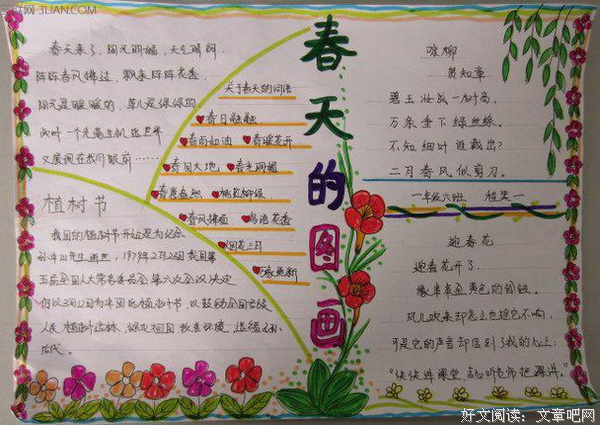 3LIAN.COM
春天的图画
春天来了，阳光明媚，天气晴朗
阵阵春风拂过，飘来阵阵花香
阳光是暖暖的，草儿是绿绿的
又展现在我们眼前……
植树节
我国的植树节开始是为纪念
孙中山先生逝世，1979年2月23日我国第
五届全国人大常务委员会第六次会议决定
仍以3月12日为中国的植树节，以鼓动全国各族
人民植树造林，绿化祖国，改善环境，造福子孙
后代。
关于春天的词语
春日融融
春雨如油 春暖花开
春回大地 春光明媚
春意盎然 桃红柳绿
春风拂面 鸟语花香
烟花三月
咏柳
贺知章
碧玉妆成一树高，
万条垂下绿丝绦。
不知细叶谁裁出？
二月春风似剪刀。
一年级六班
迎春花
迎春花开了，
像串串金黄色的铃铛。
风儿吹来却怎么也摇不响，
可是它的声音却传到了我的心上：
好文阅读：文章吧网